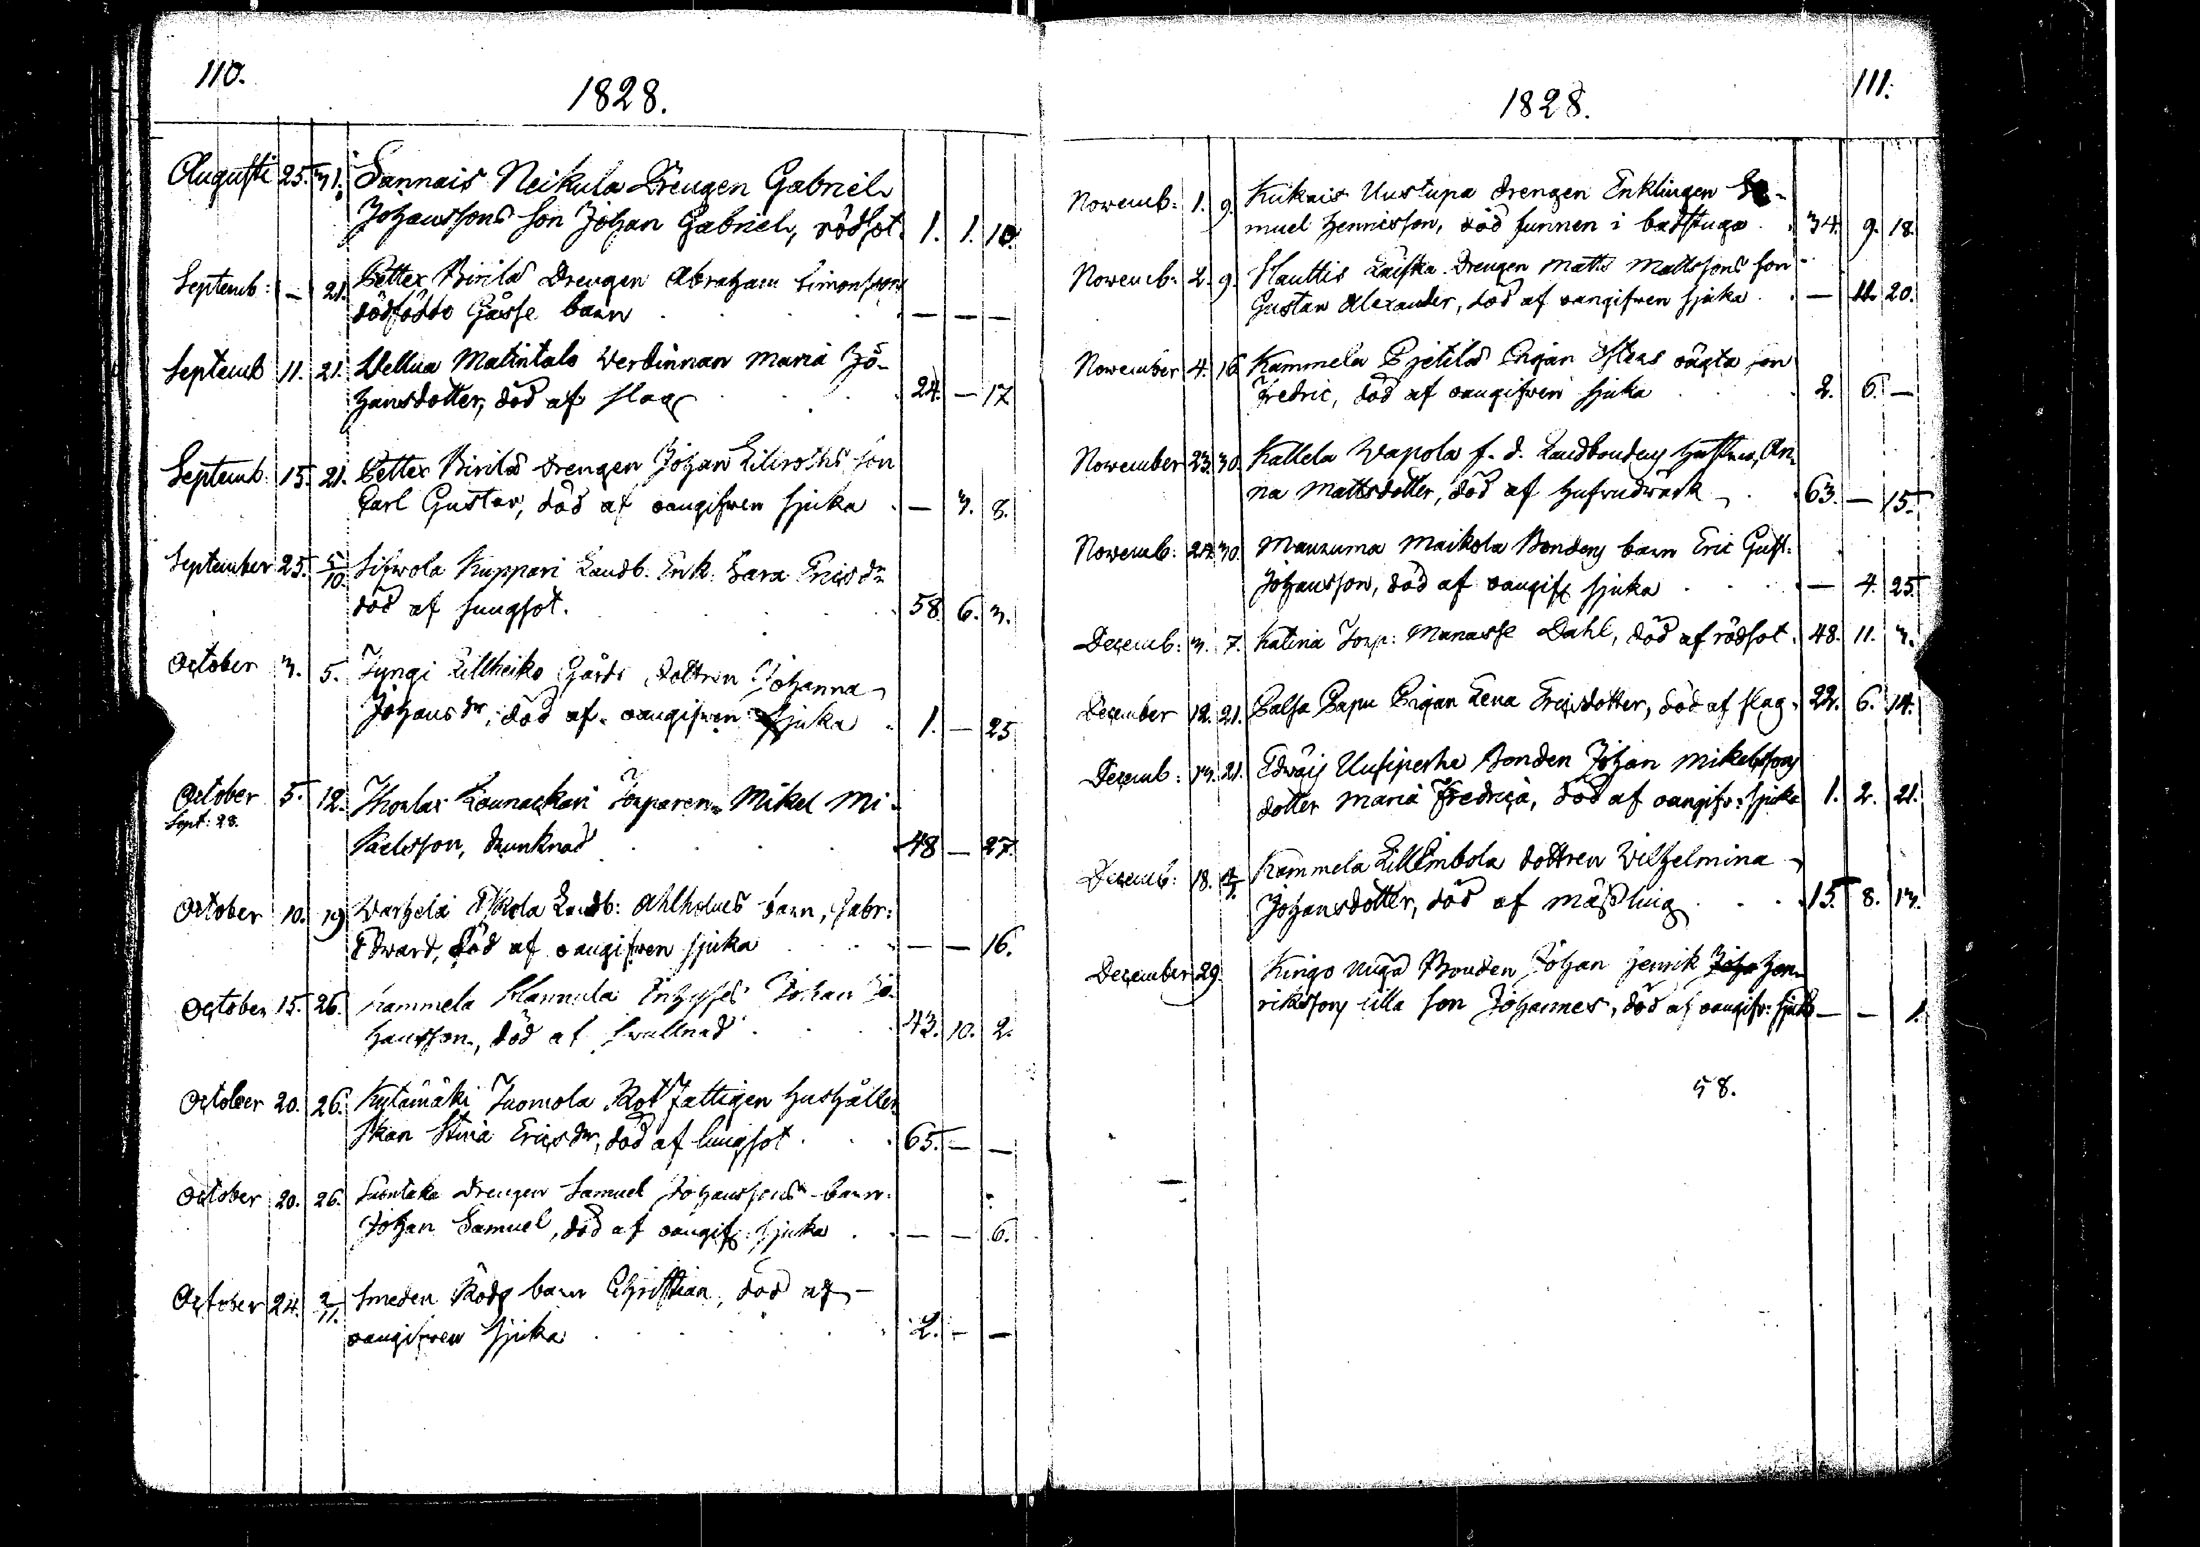 110.
1828.
Augusti 25. 31. Sannais Neikula Drengen Gabriel
Johanssons Son Johan Gabriel, rödsot. 1. 1. 10
Septemb: — 21. Petter Birilas Drengen Abraham Simonssons
dödfödde Gåsse barn — — —
Septemb 11. 21. Wellua Matintalo Werdinnan Maria Jo-
hansdotter, död af slag 24. — 17
Septemb. 15. 21. Petter Birilas Drengen Johan Liliroths son
Carl Gustav, död af oangifwen sjuka — 3. 8.
September 25. 5/10 Sifwola Kuppari Landb. Enk. Sara Ericsdr
död af lungsot. 58. 6. 3.
October 3. 5. Jyngi Lillheiko Gårds dottren Johanna
Johans dr, död af oangifwen sjuka 1. — 25
October 5. 12. Kounackari Torparen Mikel Mi-
Sept: 28.
kaelsson, drunknad 48 — 27.
October 10. 19 Warhela Landb: Ahlholms barn, Gabr:
Edward, död af oangifwen sjuka — — 16.
October 15. 26. Kammela Hannula Inhyses Johan Jo-
hansson, död af swullnad 43. 10. 2.
October 20. 26. Kytämäki Juomola Rot fattigen hushåller-
skan Stina Erics dr, död af lungsot 65. — —
October 20. 26. Suontaka Drengen Samuel Johanssons barn
Johan Samuel, död af oangif: sjuka — — 6.
October 24. 2/11. Smeden Rods barn Christian, död af
oangifwen sjuka 2. — —
111.
1828.
Novemb: 1. 9. Kukais Uustupa drengen Enklingen Sa-
muel Henricsson, död funnen i badstuga 34. 9. 18.
Novemb. 2. 9. Hauttis drengen Matts Mattssons son
Gustav Alexander, död af oangifwen sjuka — 11. 20.
November 4. 16 Kammela Pjetilas Pigan oägta son
Fredric, död af oangifwen sjuka 2. 6. —
November 23. 30. Kallela Wapola f. d. Landbondens hustru, An-
na Mattsdotter, död af hufvudwärk 63. — 15.
Novemb: 24. 30. Maunuma Maikola Bondens barn Eric Gust.
Johansson, död af oangif sjuka — 4. 25.
Decemb: 3. 7. Katina Torp: Manasse Dahl, död af rödsot. 48. 11. 3.
December 12. 21. Palsa Papu Pigan Lena Ericsdotter, död af slag. 22. 6. 14.
Decemb: 13. 21. Edwäis Uusiperha Bonden Johan Mikelssons
dotter Maria Fredrica, död af oangifv: sjuka 1. 2. 21.
Decemb: 18. Kammela Lillembola dottren Wilhelmina
Johansdotter, död af mässling 15. 8. 13.
December 29. Kingo Nuga Bonden Johan Henrik Joha Hen-
rikssons lilla son Johannes, död af oangifv: sjuka — — 1.
58.